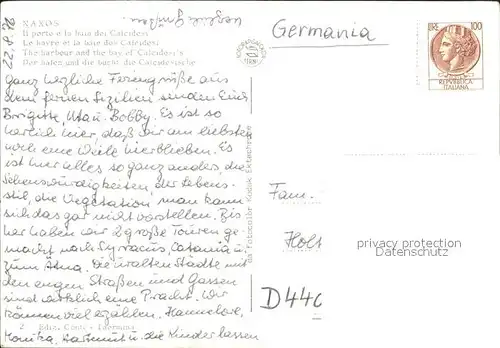 22.8.76
herzliche Grüßen
NAXOS
Il porto e la baia dei Calcidesi
Le havre et la baie des Calcidesi
The harbour and the bay of Calcidesi's
Der hafen und die bucht die Calcidesische
ganz herzliche Feriengrüße aus
dem fernen Sizilien senden Euch
Brigitte, Uta u. Bobby. Es ist so
herrlich hier, daß wir am liebsten
noch eine Weile hierblieben. Es
ist hier alles so ganz anders, die
Sehenswürdigkeiten, der Lebens-
stil, die Vegetation man kann
sich das gar nicht vorstellen. Bis-
her haben wir 2 große Touren ge-
macht nach Syracus, Catania u.
zum Ätna. Die uralten Städte mit
den engen Straßen und Gassen
sind wirklich eine Pracht. Wir
können viel erzählen. Hannelore,
Monika, Hartmut u. die Kinder lassen
2 Ediz. Conti - Taormina
da Fotocolor Kodak Ektachrome
Germania
LIRE 100
REPVBBLICA
ITALIANA
Fam.
Holt
D 44
privacy protection
Datenschutz